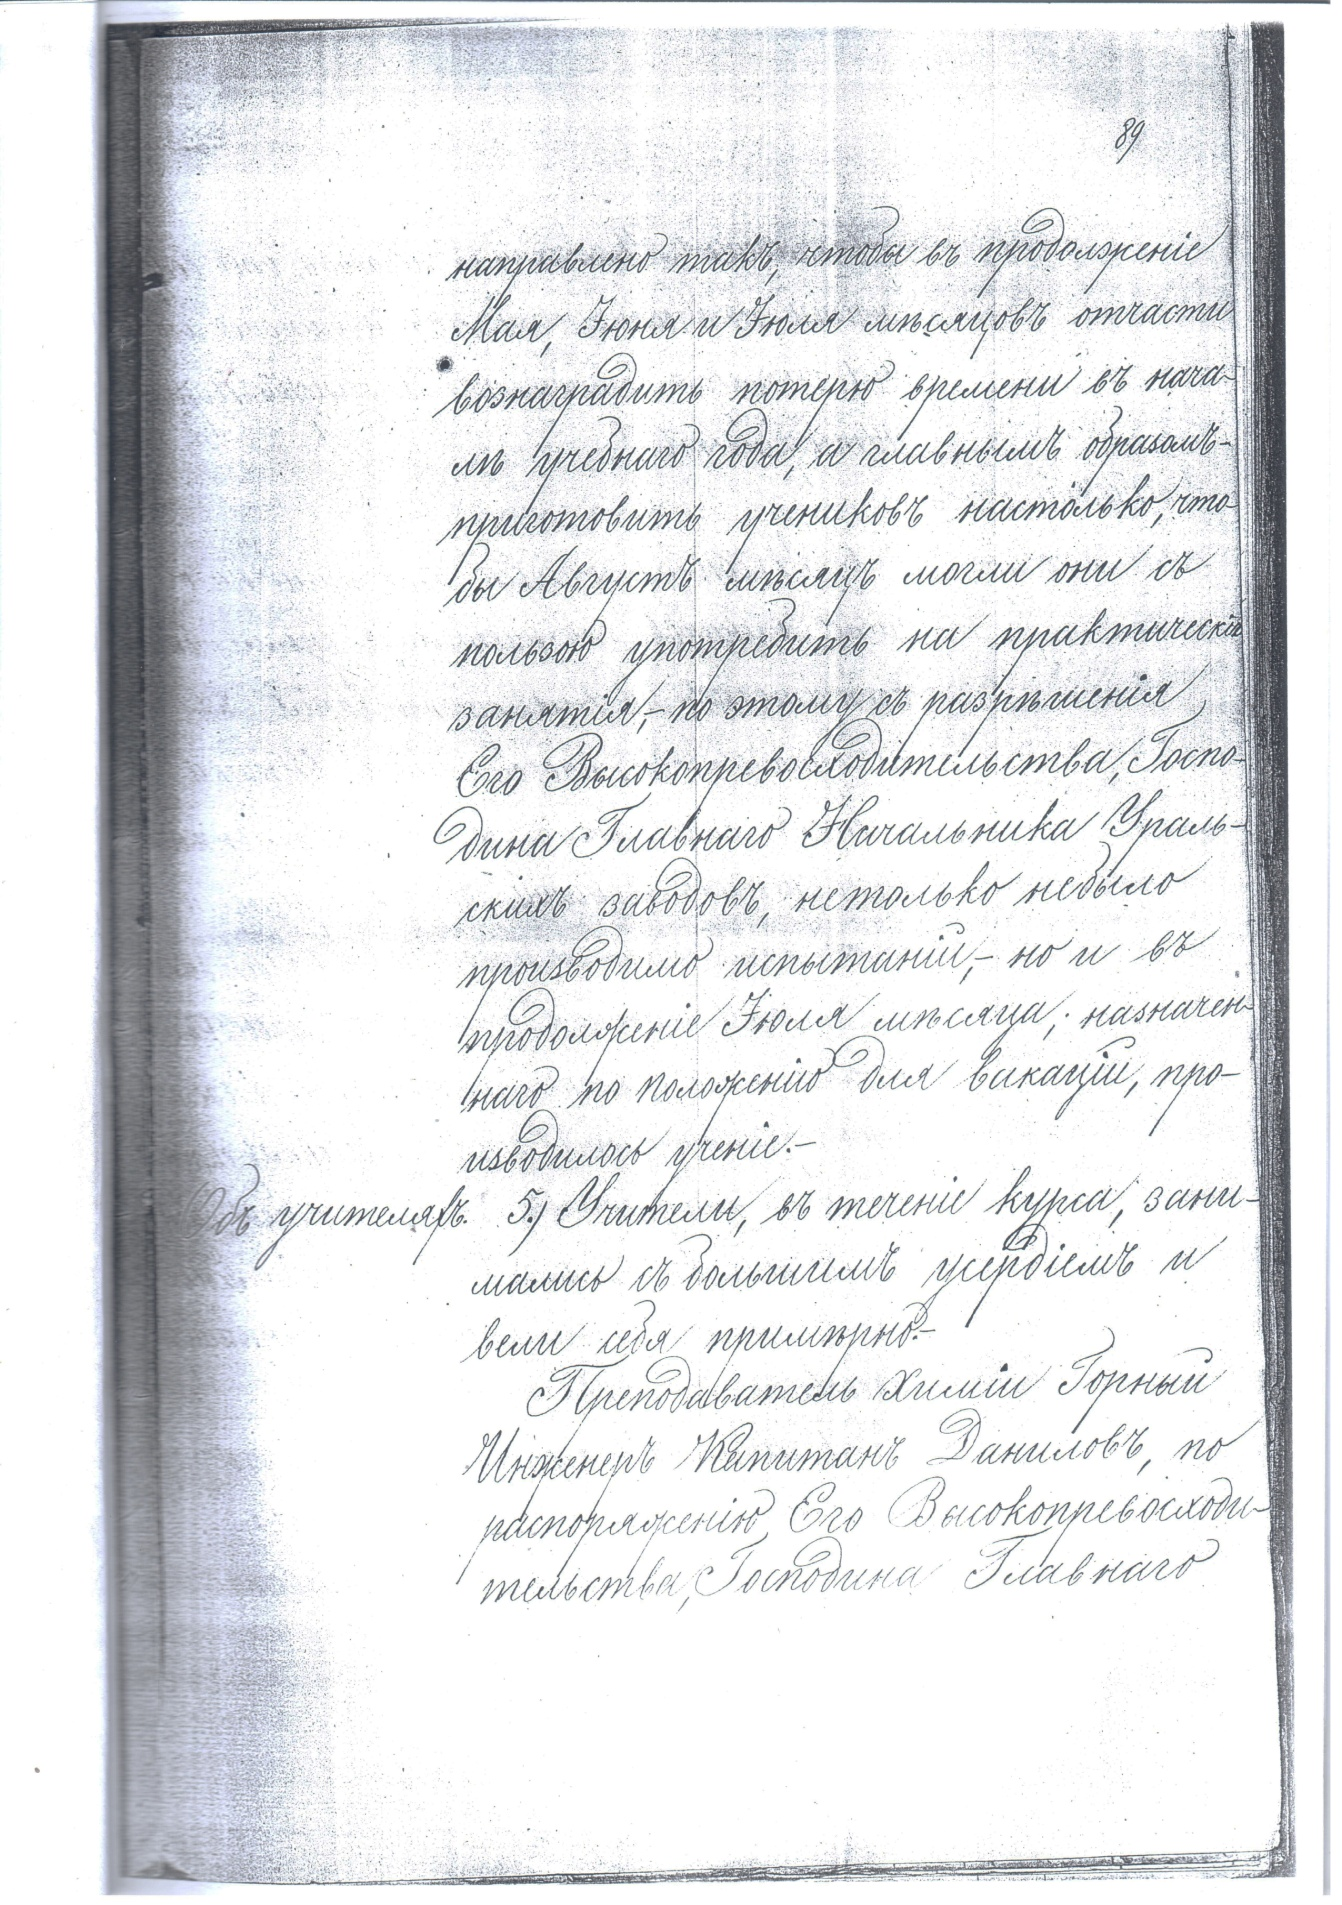 89
направлено такъ, чтобы въ продолженіе
Мая, Іюня и Іюля мѣсяцовъ отчасти
вознаградить потерю времени въ нача-
лѣ учебнаго года, а главнымъ образомъ-
приготовить учениковъ настолько, что
бы Августъ мѣсяцъ могли они съ
пользою употребить на практическія
занятія,- по этому съ разрѣшенія
Его Высокопревосходительства, Госпо-
дина Главнаго Начальника Ураль-
скихъ заводовъ, нетолько небыло
производимо испытаній,- но и въ
продолженіе Іюля мѣсяца, назначен-
наго по положенію для вакаціи, про-
изводилось ученіе.-
Объ учителяхъ. 5.) Учители, въ теченіе курса, зани-
мались съ большимъ усердіемъ и
вели себя примѣрно.-
Преподаватель химіи Горный
Инженеръ Капитанъ Даниловъ, по
распоряженію Его Высокопревосходи-
тельства, Господина Главнаго